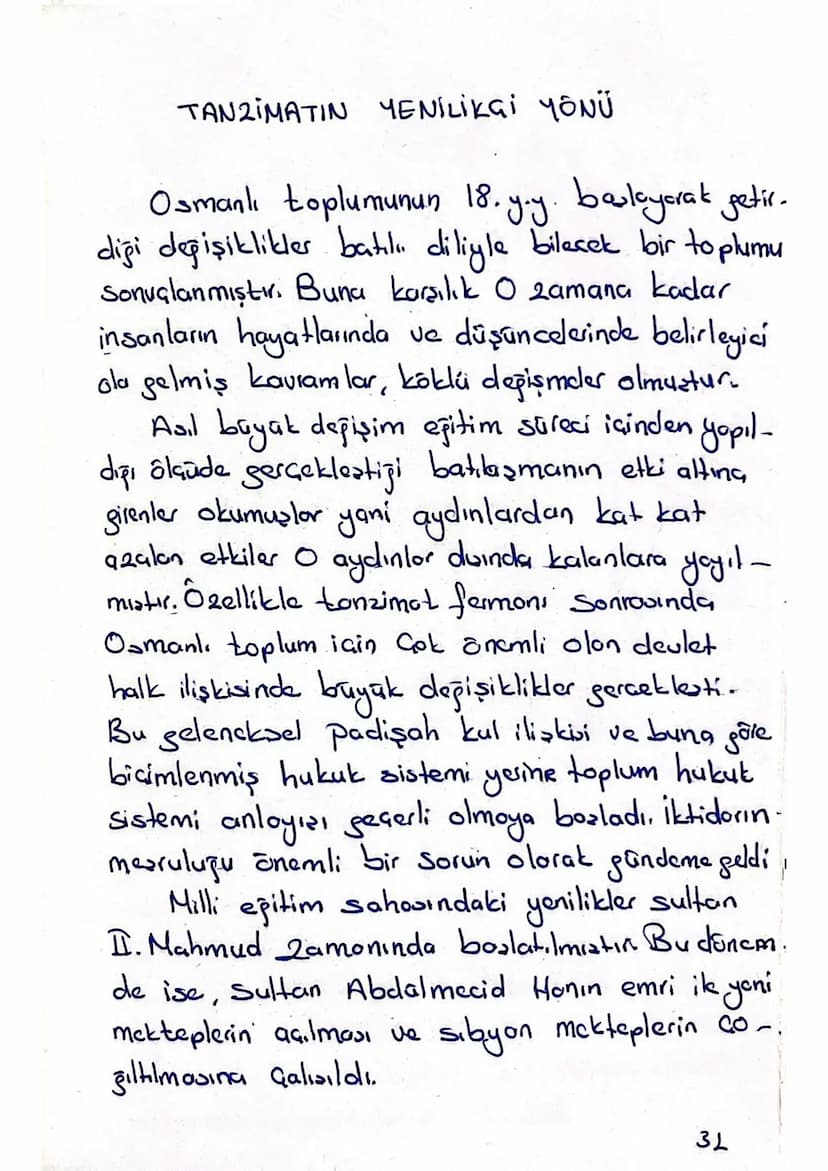 TANZİMATIN YENİLİKÇİ YÖNÜ
Osmanlı toplumunun 18. y.y. başlayarak getir-
diği değişiklikler batılı diliyle bilecek bir toplumu
sonuçlanmıştır. Buna karşılık O zamana kadar
insanların hayatlarında ve düşüncelerinde belirleyici
ola gelmiş kavramlar, köklü değişmeler olmuştur.
Asıl büyük değişim eğitim süreci içinden yapıl-
dığı ölçüde gerçekleştiği batılaşmanın etki altına
girenler okumuşlar yani aydınlardan kat kat
azalan etkiler O aydınlar dışında kalanlara yayıl-
mıştır. Özellikle tanzimat fermanı sonrasında
Osmanlı toplum için çok önemli olan devlet
halk ilişkisinde büyük değişiklikler gerçekleşti.
Bu geleneksel padişah kul ilişkisi ve buna göre
biçimlenmiş hukuk sistemi yerine toplum hukuk
sistemi anlayışı geçerli olmaya başladı. İktidarın
meşruluğu önemli bir sorun olarak gündeme geldi
Milli eğitim sahasındaki yenilikler sultan
II. Mahmud zamanında başlatılmıştır. Bu dönem.
de ise, Sultan Abdalmecid Hanın emri ile yeni
mekteplerin açılması ve sıbyan mekteplerin ço-
ğıltılmasına çalışıldı.
32